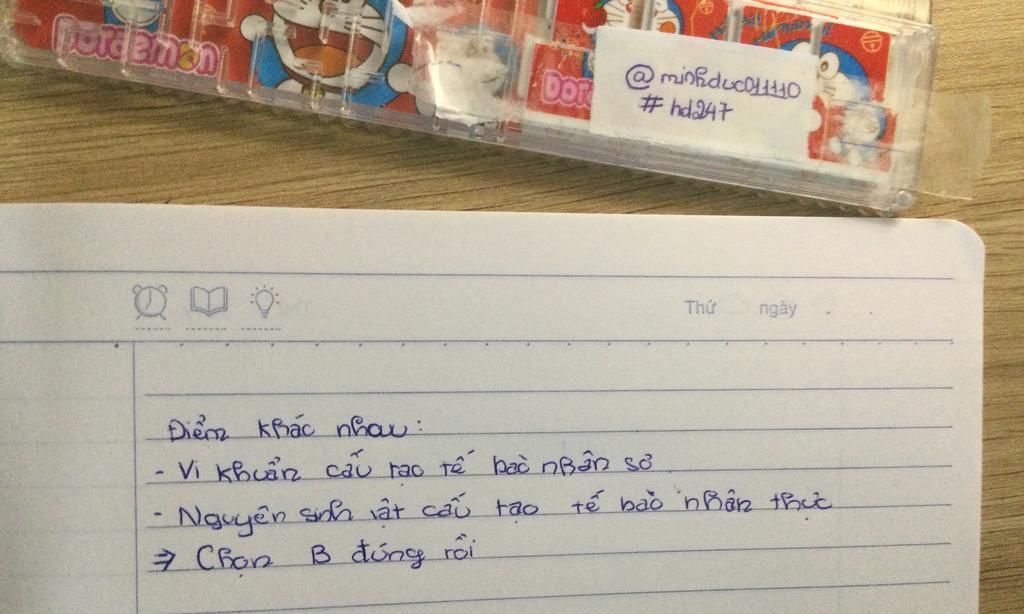 Doraemon
Dor
@minhduc011110
#hd247
Thứ ngày
Điểm khác nhau:
- Vi khuẩn cấu tạo tế bào nhân sơ
- Nguyên sinh vật cấu tạo tế bào nhân thực
⇒ Chọn B đúng rồi